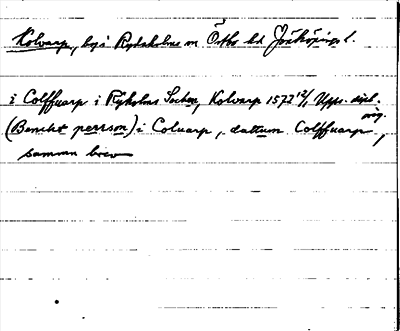 Kolvarp, by i Rydaholms sn Östbo hd Jönköpings l.
i Colffuarp i Ryholms Sochen, Kolvarp 1572 12/1 Upps. dipl.
orig.
(Bencht persson) i Coluarp, dattum Colffuarp,
samma brev